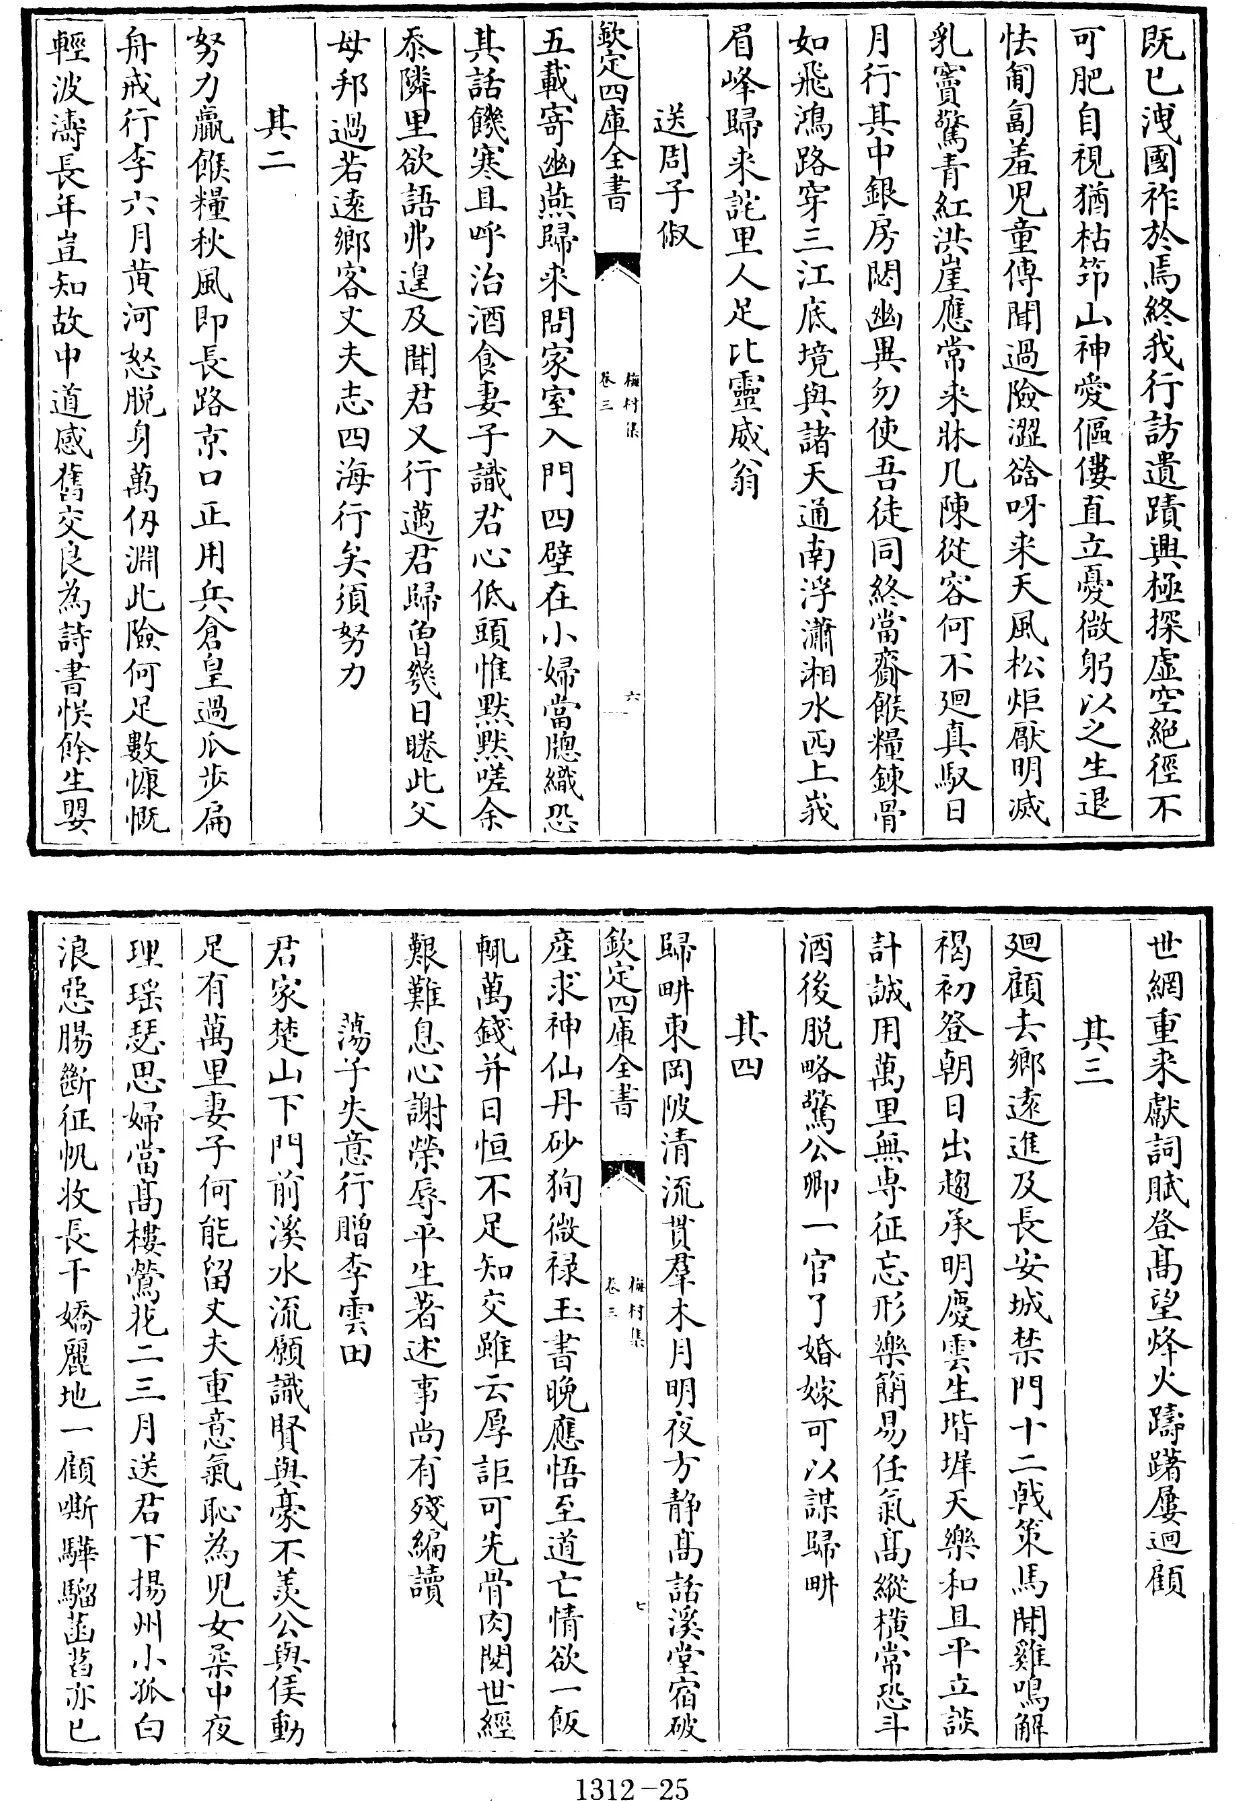 既已洩國祚於焉終我行訪遺蹟興極探虛空絶徑不
可肥自視猶枯笻山神愛傴僂直立憂微躬以之生退
怯匍匐羞兒童傳聞過險澀谽呀来天風松炬厭明滅
乳竇驚青紅洪崖應常来牀几陳從容何不廻真馭日
月行其中銀房閟幽異勿使吾徒同終當齎餱糧鍊骨
如飛鴻路穿三江底境與諸天通南浮瀟湘水西上峩
眉峰歸来詫里人足比靈威翁
送周子俶
欽定四庫全書
梅村集
卷三
六
五載寄幽燕歸来問家室入門四壁在小婦當牕織恐
其話饑寒且呼治酒食妻子識君心低頭惟黙黙嗟余
忝隣里欲語弗遑及聞君又行邁君歸曾幾日睠此父
母邦過若遠鄉客丈夫志四海行矣須努力
其二
努力贏餱糧秋風即長路京口正用兵倉皇過瓜步扁
舟戒行李六月黄河怒脱身萬仞淵此險何足數慷慨
輕波濤長年豈知故中道感舊交良為詩書悞餘生嬰
世網重来獻詞賦登髙望烽火躊躇屢迴顧
其三
廻顧去鄉遠進及長安城禁門十二戟策馬聞雞鳴解
褐初登朝日出趨承明慶雲生堦墀天樂和且平立談
計誠用萬里無専征忘形樂簡易任氣髙縱横常恐斗
酒後脱略驚公卿一官了婚嫁可以謀歸畊
其四
歸畊東岡陂清流貫羣木月明夜方静髙話溪堂宿破
欽定四庫全書
梅村集
卷三
七
産求神仙丹砂狥微禄玉書晚應悟至道亡情欲一飯
輒萬錢并日恒不足知交雖云厚詎可先骨肉閱世經
艱難息心謝榮辱平生著述事尚有殘編讀
蕩子失意行贈李雲田
君家楚山下門前溪水流願識賢與豪不羡公與侯動
足有萬里妻子何能留丈夫重意氣恥為兒女柔中夜
理瑶瑟思婦當髙樓鶯花二三月送君下揚州小孤白
浪惡腸斷征帆收長干嬌麗地一顧嘶驊騮菡萏亦已
1312-25